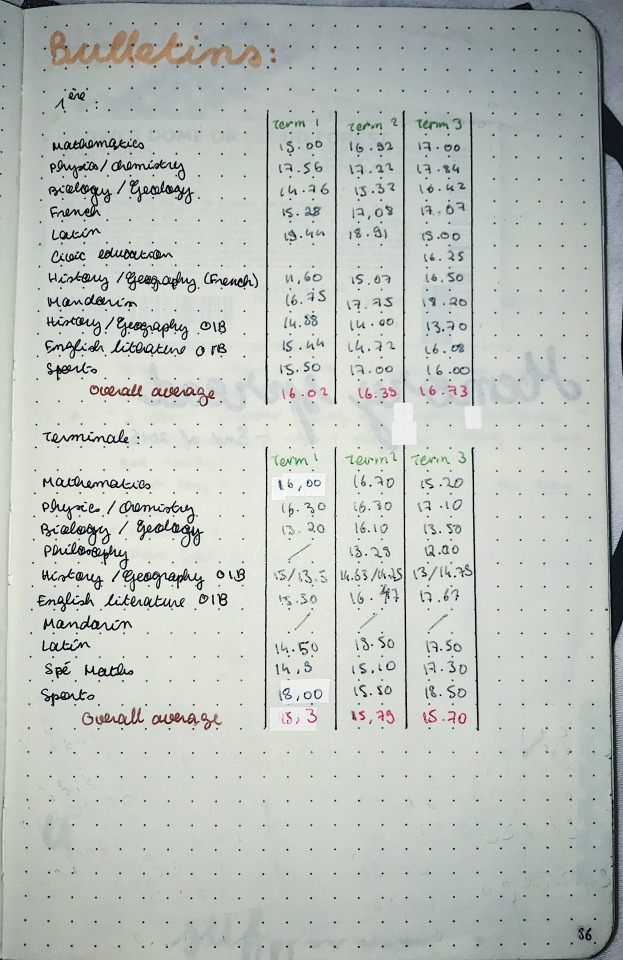 Bulletins:
1ère :
Term 1 Term 2 Term 3
Mathematics 15.00 16.92 17.00
Physics/chemistry 17.56 17.22 17.84
Biology/Geology 14.76 15.32 16.42
French 15.28 17,08 17.07
Latin 19.44 18.91 19.00
Civic education 16.25
History/Geography (French) 11,60 15.07 16.50
Mandarin 16.75 17.75 18.20
History/Geography OIB 14.88 14.00 13.70
English literature OIB 15.44 14.72 16.08
Sports 15.50 17.00 16.00
Overall average 16.02 16.35 16.73
Terminale :
Term 1 Term 2 Term 3
Mathematics 16,00 16.70 15.20
Physics / chemistry 16.30 16.30 17.10
Biology / Geology 13.20 16.10 13.50
Philosophy / 13.28
History/Geography OIB 15/13.5 14.63/14.25 13/14.75
English literature OIB 15.50 16. 17.67
Mandarin / / /
Latin 14.50 18.50 17.50
Spé Maths 14,8 15.10 17.30
Sports 18,00 15.50 18.50
Overall average 15,3 15,79 15.70
86